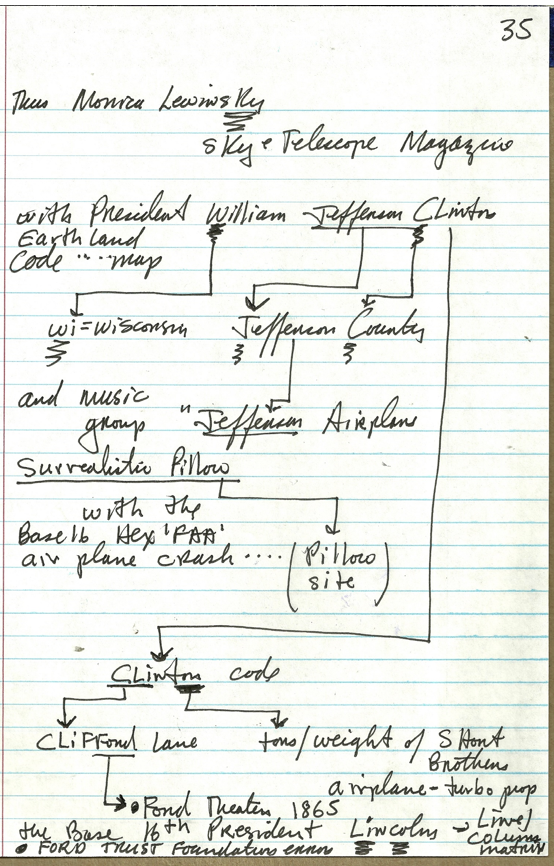 35
Thus Monica Lewinsky
sky & Telescope Magazine
with President William Jefferson CLinton
Earth Land
Code ".... map
wi = wisconsin Jefferson County
and music
group "Jefferson Airplane
Surrealistic Pillow
with the
Base 16 Hex 'FAA'
air plane crash .... (Pillow
site)
CLinton code
CLiFFord Lane tons/weight of Short
Brothers
airplane - turbo prop
• Ford Theater 1865
the Base 16th President Lincoln → Line/
Column
matrix
• FORD TRUST Foundation error